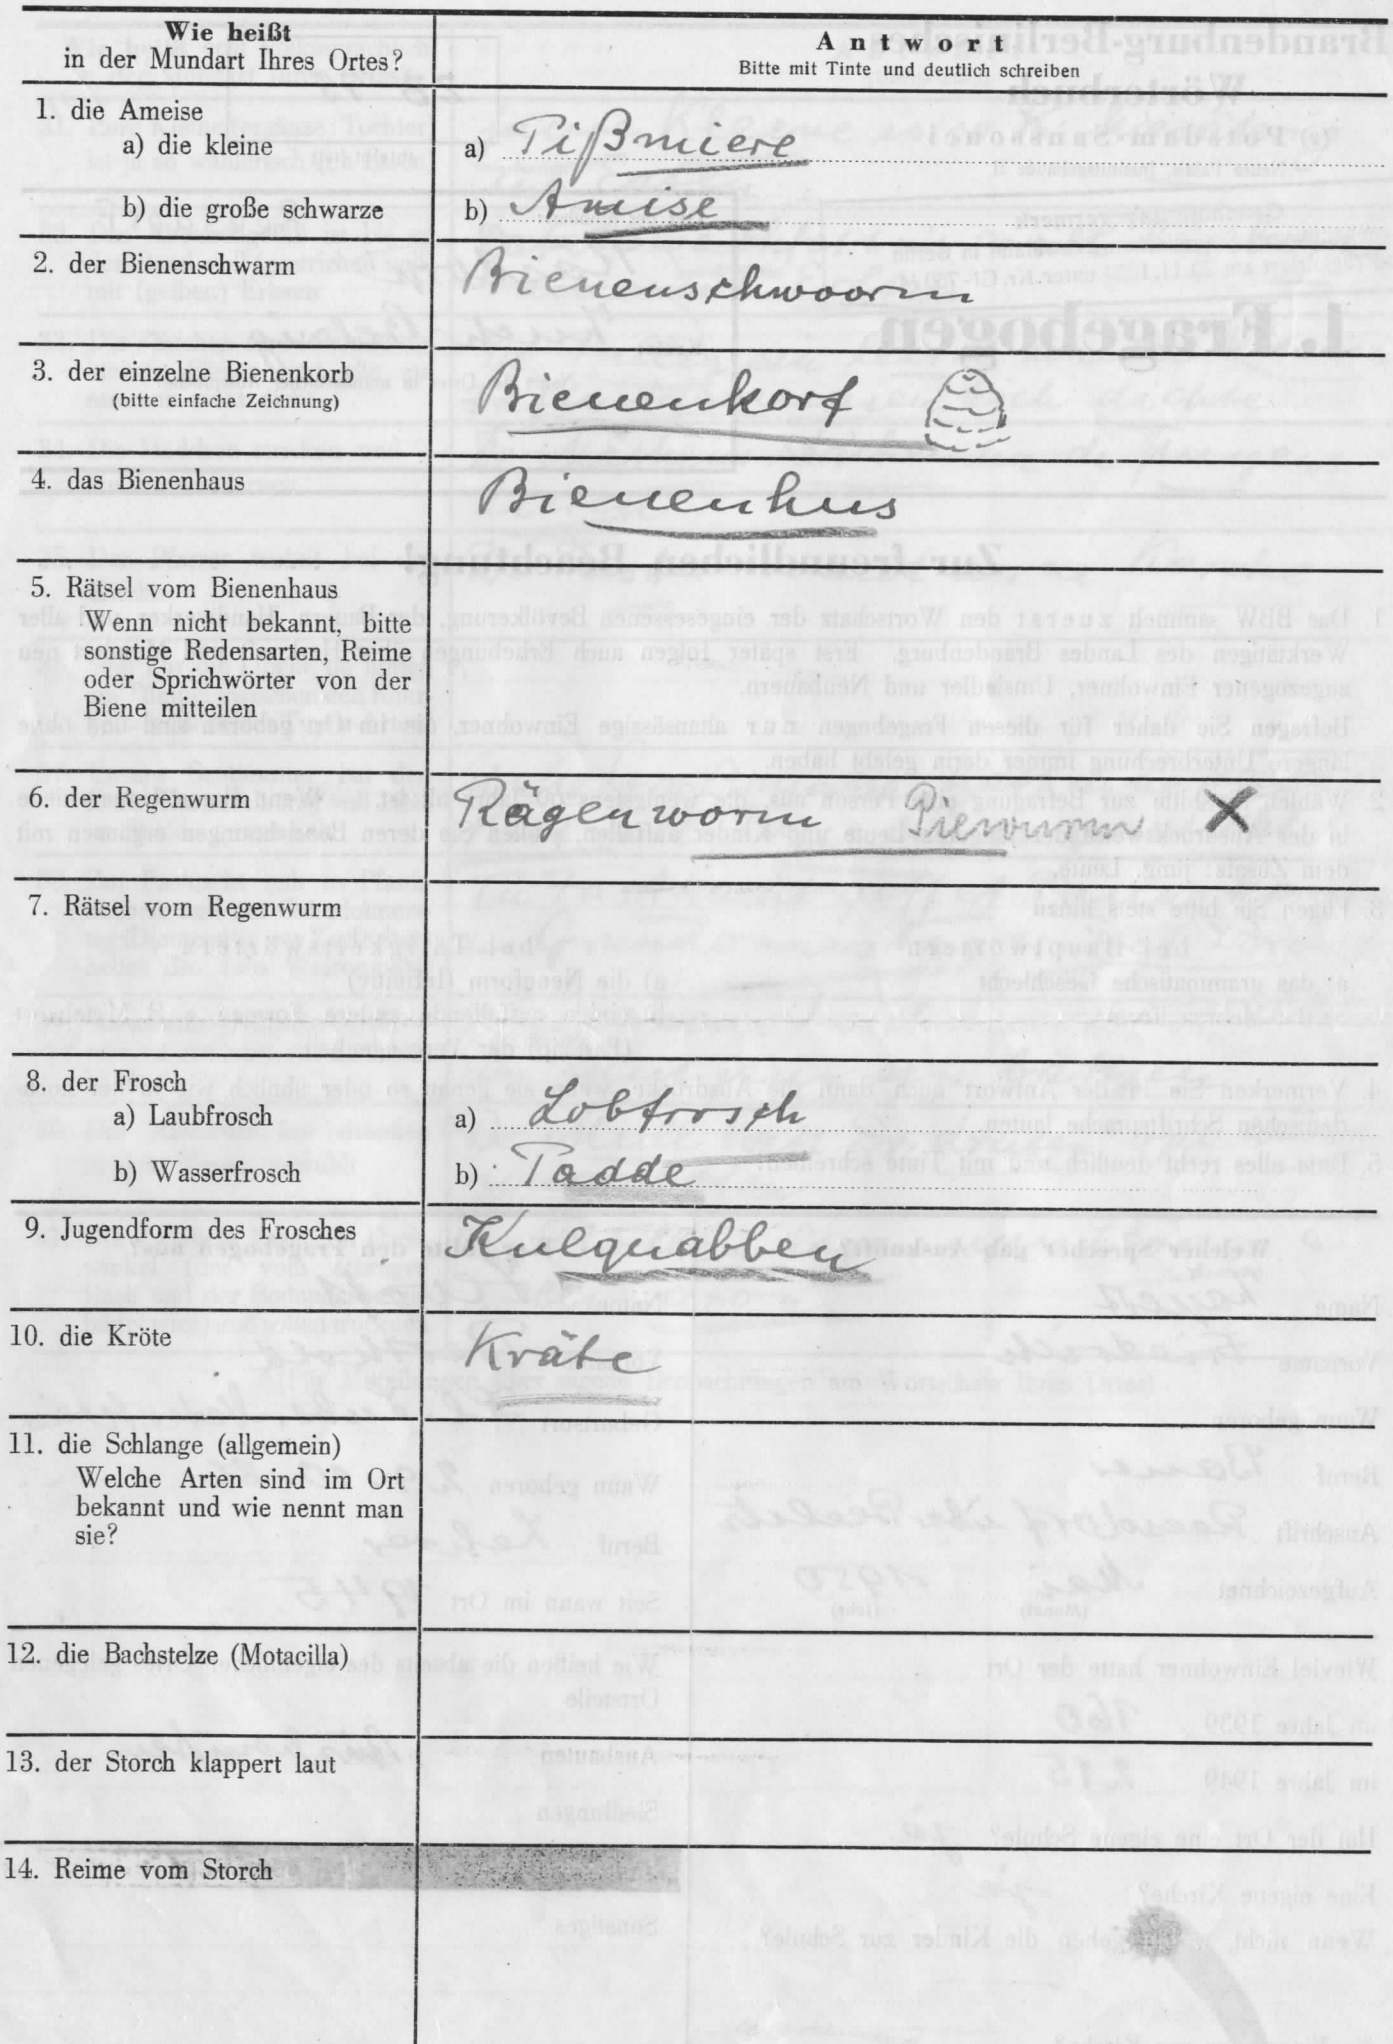 Wie heißt
in der Mundart Ihres Ortes?
Antwort
Bitte mit Tinte und deutlich schreiben
1. die Ameise
a) die kleine
a) Pißmiere
b) die große schwarze
b) Amise
2. der Bienenschwarm
Bienenschwoorm
3. der einzelne Bienenkorb
(bitte einfache Zeichnung)
Bienenkorf
4. das Bienenhaus
Bienenhus
5. Rätsel vom Bienenhaus
Wenn nicht bekannt, bitte
sonstige Redensarten, Reime
oder Sprichwörter von der
Biene mitteilen
6. der Regenwurm
Rägenworm Pierwurm X
7. Rätsel vom Regenwurm
8. der Frosch
a) Laubfrosch
a) Lobfrosch
b) Wasserfrosch
b) Padde
9. Jugendform des Frosches
Kulquabben
10. die Kröte
Kräte
11. die Schlange (allgemein)
Welche Arten sind im Ort
bekannt und wie nennt man
sie?
12. die Bachstelze (Motacilla)
13. der Storch klappert laut
14. Reime vom Storch